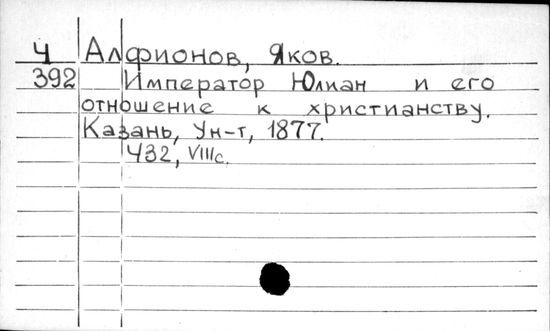 Ч Алфионов, Яков.
392 Император Юлиан и его
отношение к христианству.
Казань, Ун-т, 1877.
432, VIIIс.